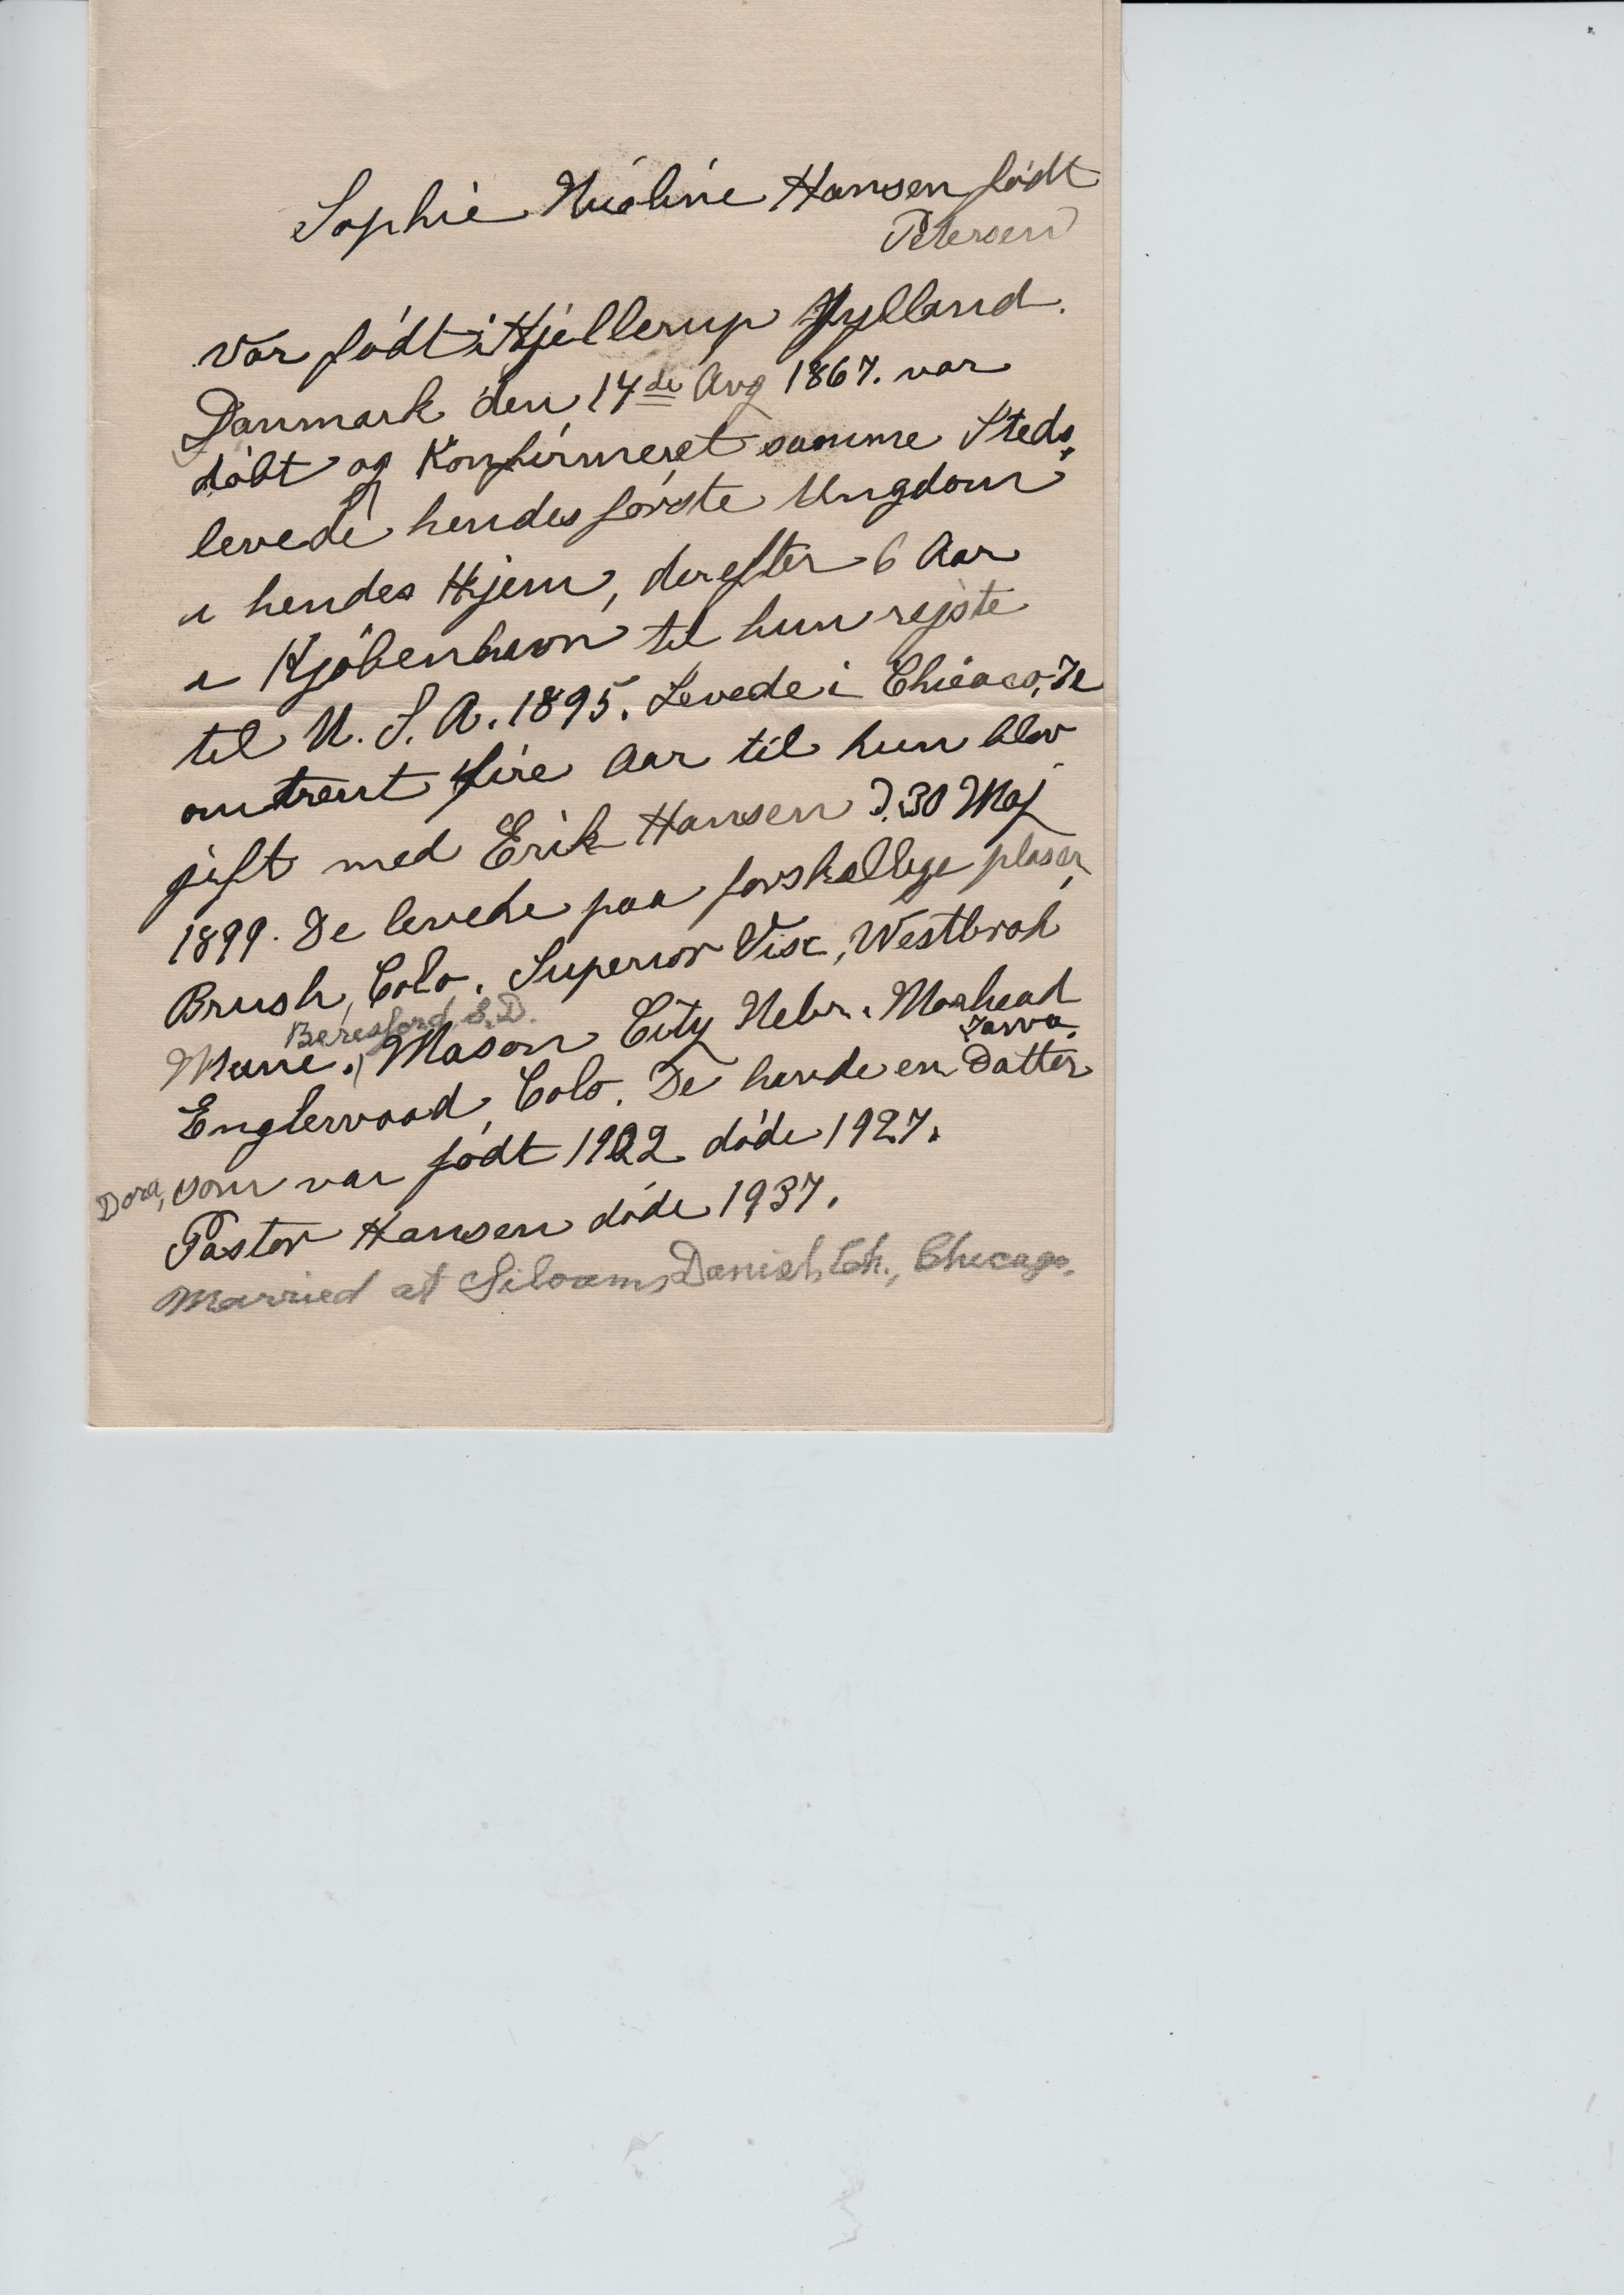 Sophie Nicoline Hansen født
Petersen
var født i Kjellerup Jylland.
Danmark den 14de Aug 1867. var
døbt og Konfirmeret samme Steds.
levede hendes første Ungdom
i hendes Hjem, derefter 6 Aar
i Kjøbenhavn til hun rejste
til U.S.A. 1895. Levede i Chicaco, Il
omtrent fire Aar til hun blev
gift med Erik Hansen D. 30 Maj
1899. De levede paa forskellige plaser,
Brush, Colo. Superior Visc, Westbrok
Beresford, S.D.
Mine. Mason City Nebr. Morhead
Iowa.
Englewood, Colo. De havde en Datter
Dora, som var født 1902 døde 1927.
Pastor Hansen døde 1937.
Married at Siloams Danish Ch., Chicago.